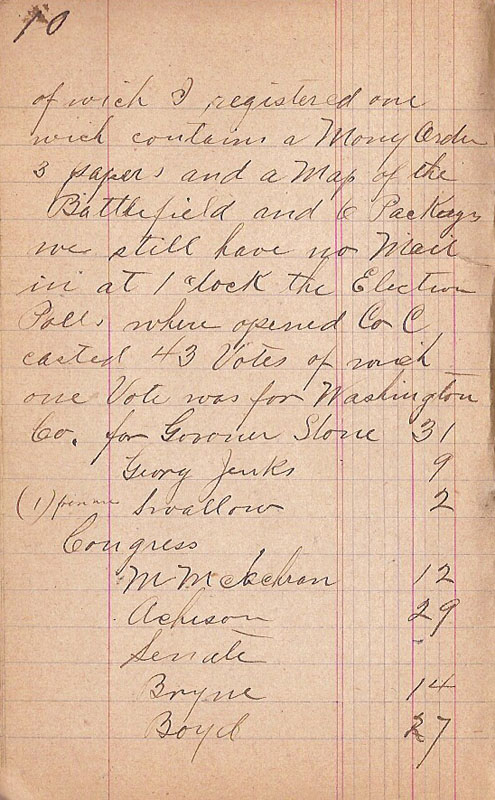 10
of wich I registered one
wich contains a Mony Order
3 papers and a Map of the
Battlefield and 6 Packags
we still have no Mail
in at 1 clock the Election
Polls where opened Co C
casted 43 Votes of wich
one Vote was for Washington
Co. for Govoner Stone 31
Georg Jenks 9
(1) Swallow 2
Congress
M 12
Acheson 29
Senate
Bryne 14
Boyd 27